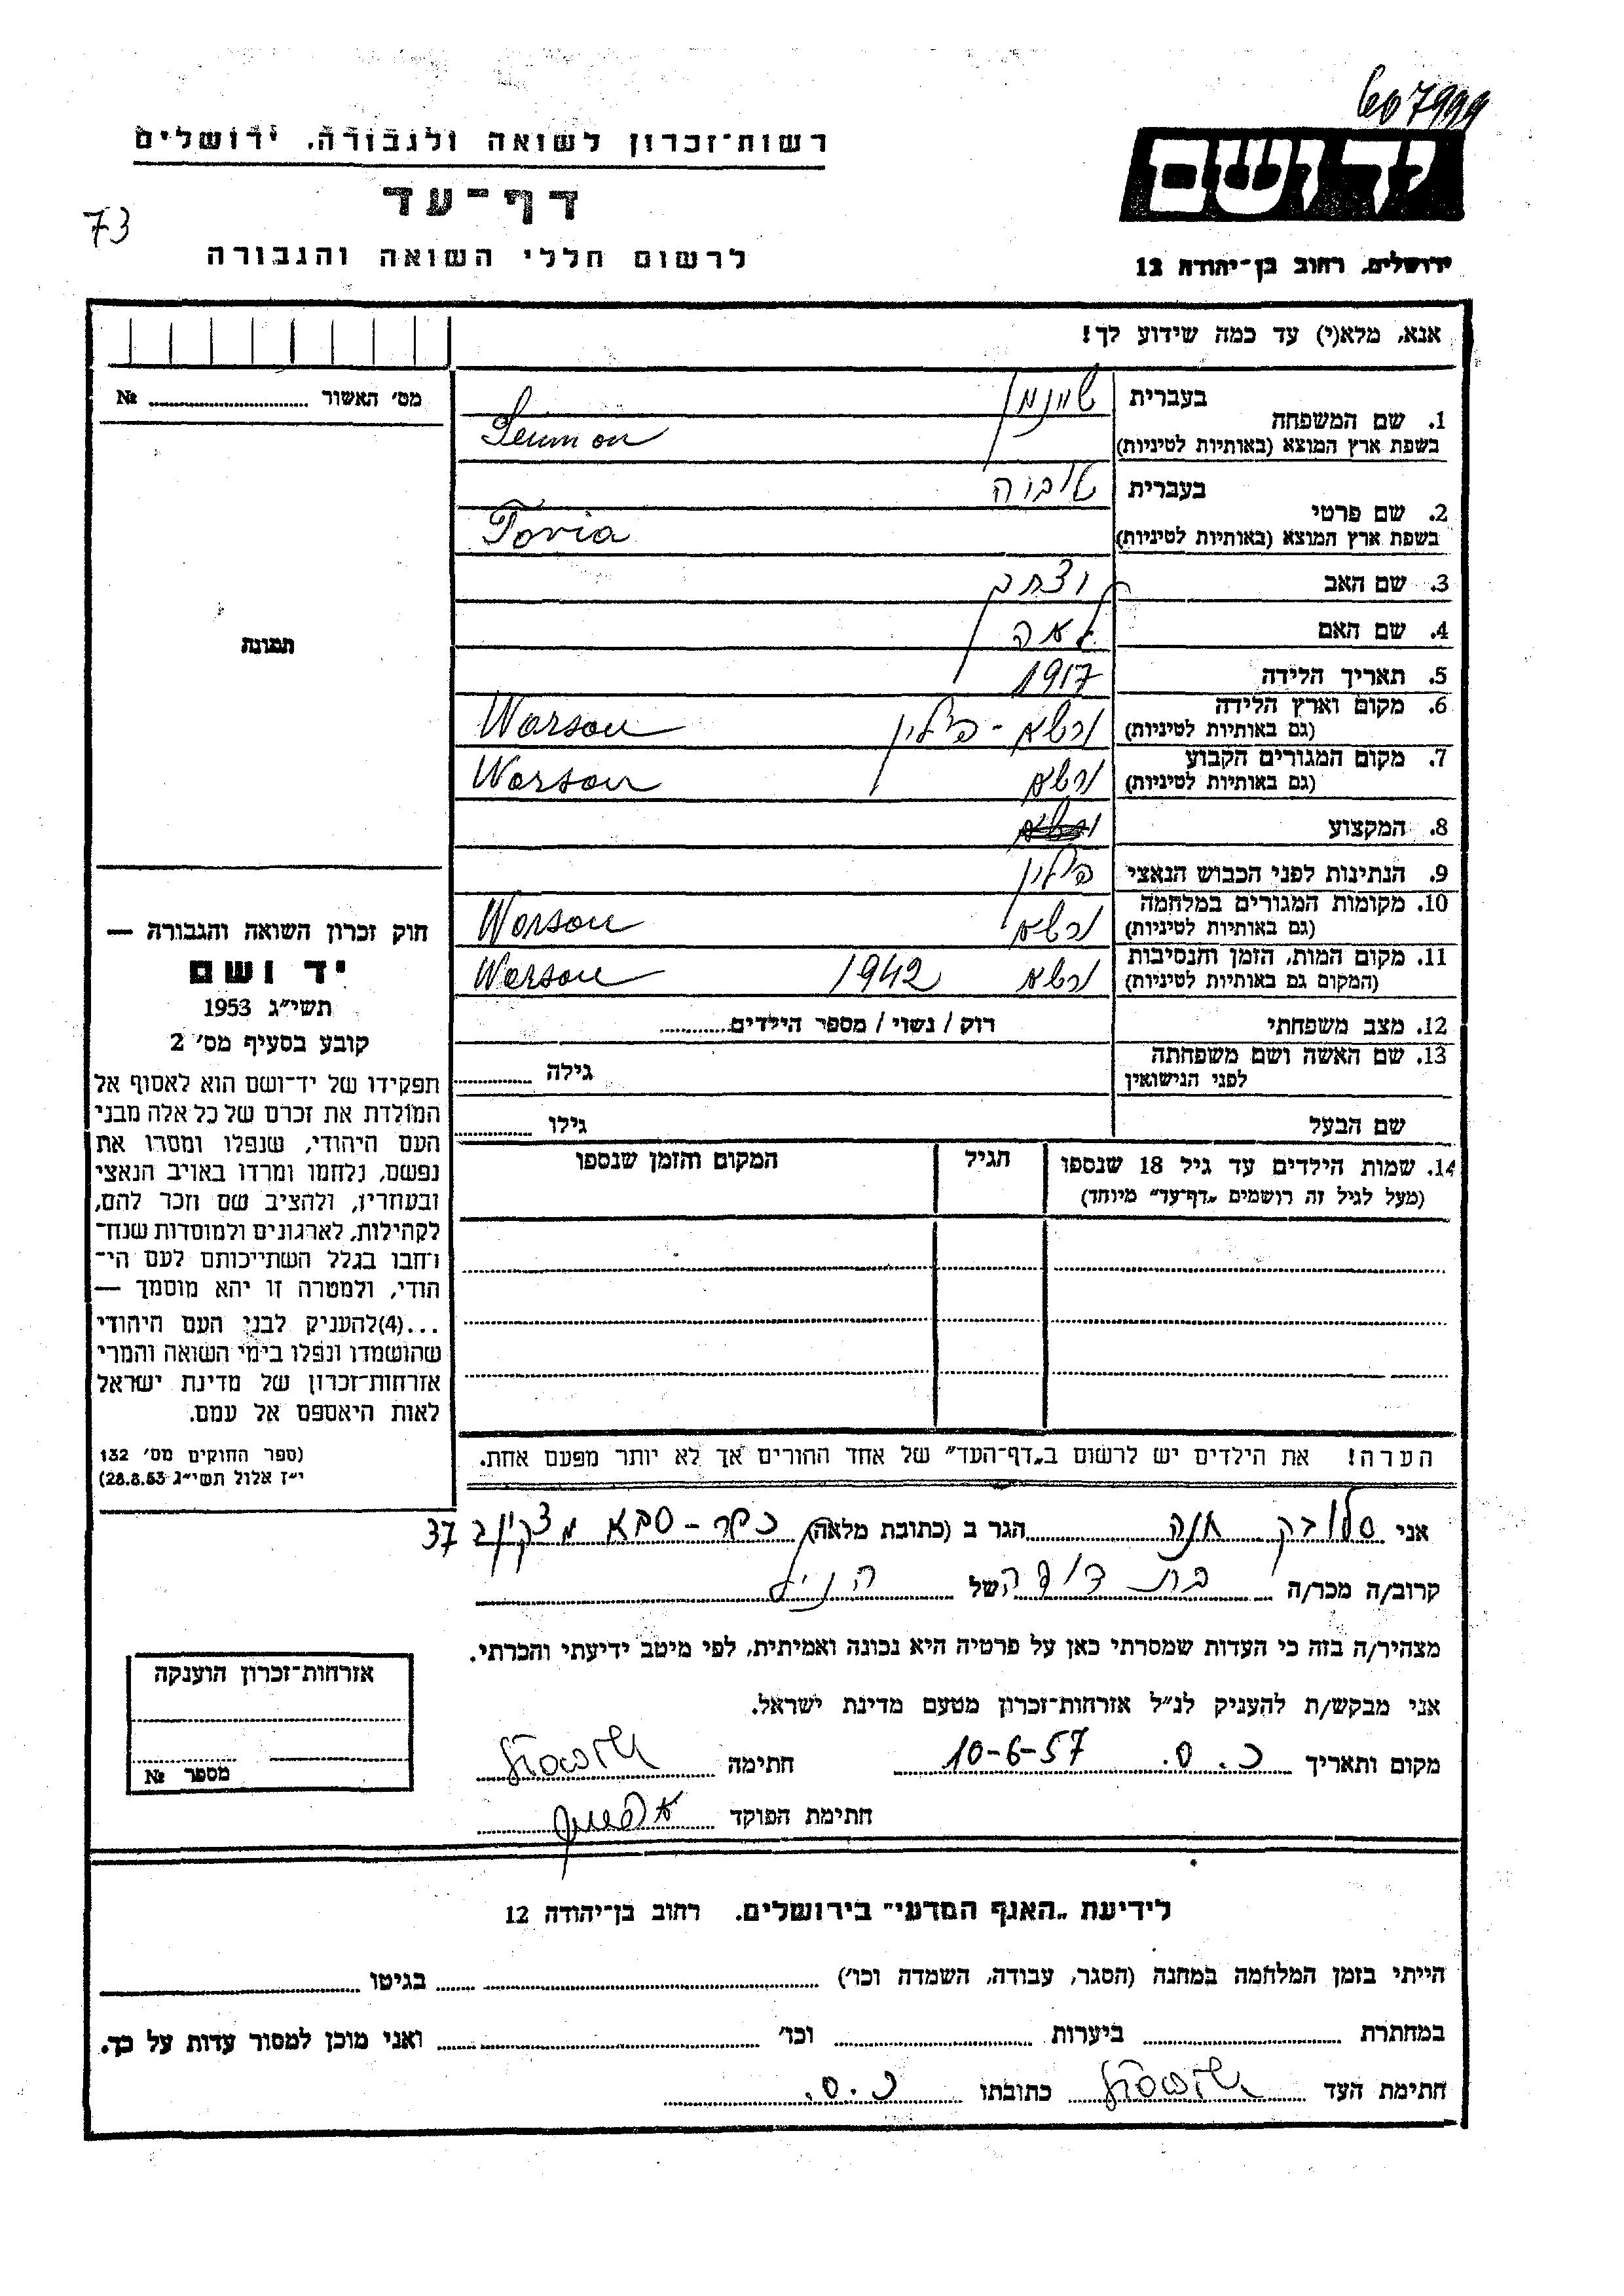 607999
רשות־זכרון לשואה ולגבורה, ירושלים
יד ושם
דף־עד
73
לרשום חללי השואה והגבורה
ירושלים, רחוב בן־יהודה 12
אנא, מלא(י) עד כמה שידוע לך!
מס׳ האשור № 
1. שם המשפחה
בעברית שיינמן
בשפת ארץ המוצא (באותיות לטיניות)
2. שם פרטי
בעברית טוביה
בשפת ארץ המוצא (באותיות לטיניות) Tovia
3. שם האב יצחק
4. שם האם לאה
5. תאריך הלידה 1917
6. מקום וארץ הלידה ורשא - פולין Warsau
(גם באותיות לטיניות)
7. מקום המגורים הקבוע ורשא Warsau
(גם באותיות לטיניות)
8. המקצוע
9. הנתינות לפני הכבוש הנאצי פולין
10. מקומות המגורים במלחמה ורשא Warsau
(גם באותיות לטיניות)
11. מקום המות, הזמן והנסיבות ורשא 1942 Warsau
(המקום גם באותיות לטיניות)
12. מצב משפחתי רוק / נשוי / מספר הילדים
13. שם האשה ושם משפחתה
לפני הנישואין גילה
שם הבעל גילו
14. שמות הילדים עד גיל 18 שנספו הגיל המקום והזמן שנספו
(מעל לגיל זה רושמים „דף־עד״ מיוחד)
הערה! את הילדים יש לרשום ב„דף־העד״ של אחד ההורים אך לא יותר מפעם אחת.
תמונה
חוק זכרון השואה והגבורה —
יד ושם
תשי״ג 1953
קובע בסעיף מס׳ 2
תפקידו של יד־ושם הוא לאסוף אל
המולדת את זכרם של כל אלה מבני
העם היהודי, שנפלו ומסרו את
נפשם, נלחמו ומרדו באויב הנאצי
ובעוזריו, ולהציב שם וזכר להם,
לקהילות, לארגונים ולמוסדות שנח־
רבו בגלל השתייכותם לעם הי־
הודי, ולמטרה זו יהא מוסמך —
...(4)להעניק לבני העם היהודי
שהושמדו ונפלו בימי השואה והמרי
אזרחות־זכרון של מדינת ישראל
לאות היאספם אל עמם.
(ספר החוקים מס׳ 132
י״ז אלול תשי״ג 28.8.53)
אני חנה הגר ב (כתובת מלאה) כפר-סבא 37
קרוב/ה מכר/ה בת דודה של הנ״ל
מצהיר/ה בזה כי העדות שמסרתי כאן על פרטיה היא נכונה ואמיתית, לפי מיטב ידיעתי והכרתי.
אני מבקש/ת להעניק לנ״ל אזרחות־זכרון מטעם מדינת ישראל.
מקום ותאריך כ.ס. 10-6-57 חתימה
חתימת הפוקד
אזרחות־זכרון הוענקה
מספר №
לידיעת „האגף המדעי״ בירושלים. רחוב בן־יהודה 12
הייתי בזמן המלחמה במחנה (הסגר, עבודה, השמדה וכו׳) בגיטו
במחתרת ביערות וכו׳ ואני מוכן למסור עדות על כך.
חתימת העד כתובתו כ.ס.